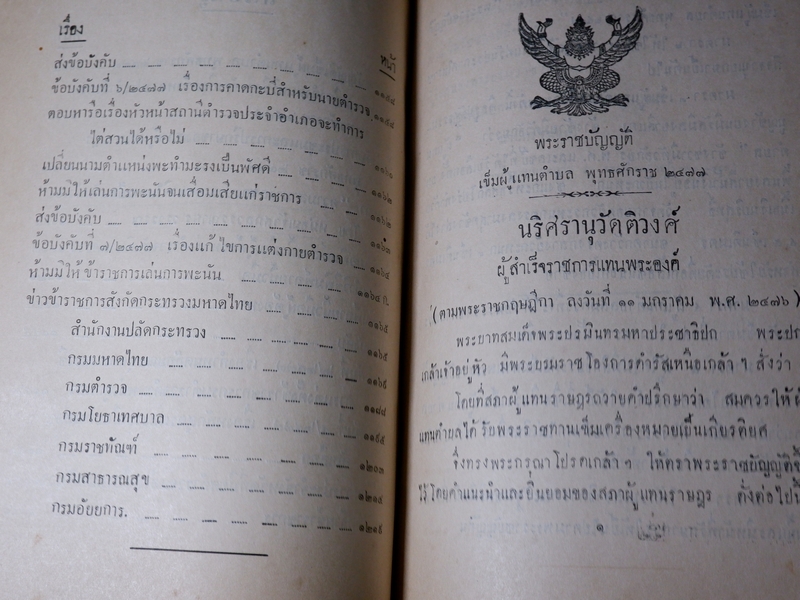 เรื่อง
หน้า
ส่งข้อบังคับ
ข้อบังคับที่ ๖/๒๔๗๗ เรื่องการคาดกะบี่สำหรับนายตำรวจ ๑๑๕๔
ตอบหารือเรื่องหัวหน้าสถานีตำรวจประจำอำเภอจะทำการ
ไต่สวนได้หรือไม่
เปลี่ยนนามตำแหน่งพะทำมะรงเป็นพัศดี
ห้ามมิให้เล่นการพะนันจนเสื่อมเสียแก่ราชการ ๑๑๖๒
ส่งข้อบังคับ ๑๑๖๓
ข้อบังคับที่ ๗/๒๔๗๗ เรื่องแก้ไขการแต่งกายตำรวจ ๑๑๖๔
ห้ามมิให้ข้าราชการเล่นการพะนัน ๑๑๖๔ ก.
ข่าวข้าราชการสังกัดกระทรวงมหาดไทย ๑๑๖๕
สำนักงานปลัดกระทรวง ๑๑๖๕
กรมมหาดไทย ๑๑๖๕
กรมตำรวจ ๑๑๘๘
กรมโยธาเทศบาล ๑๑๙๕
กรมราชทัณฑ์ ๑๒๐๓
กรมสาธารณสุข ๑๒๑๕
กรมอัยยการ. ๑๒๑๕
พระราชบัญญัติ
เข็มผู้แทนตำบล พุทธศักราช ๒๔๗๗
นริศรานุวัดติวงศ์
ผู้สำเร็จราชการแทนพระองค์
(ตามพระราชกฤษฎีกา ลงวันที่ ๑๑ มกราคม พ.ศ. ๒๔๗๖)
พระบาทสมเด็จพระปรมินทรมหาประชาธิปก พระปก
เกล้าเจ้าอยู่หัว มีพระบรมราชโองการดำรัสเหนือเกล้าฯ สั่งว่า
โดยที่สภาผู้แทนราษฎรถวายคำปรึกษาว่า สมควรให้ผู้
แทนตำบลได้รับพระราชทานเข็มเครื่องหมายเป็นเกียรติยศ
จึงทรงพระกรุณาโปรดเกล้าฯ ให้ตราพระราชบัญญัติขึ้น
ไว้โดยคำแนะนำและยินยอมของสภาผู้แทนราษฎร ดั่งต่อไปนี้
๑